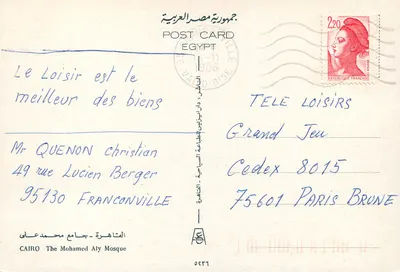 جمهورية مصر العربية
POST CARD
EGYPT
2,20
Le Loisir est le
meilleur des biens
Mr QUENON Christian
49 rue Lucien Berger
95130 FRANCONVILLE
TELE LOISIRS
Grand Jeu
Cedex 8015
75601 PARIS BRUNE
القاهرة - جامع محمد على
CAIRO The Mohamed Aly Mosque
٥٤٣٦